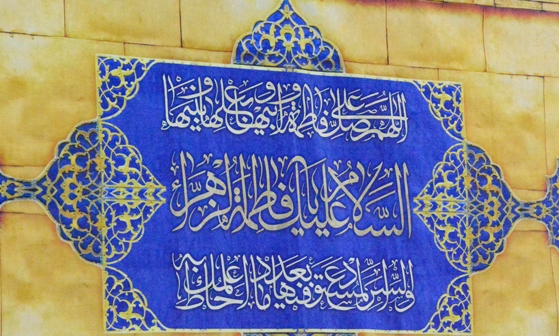 اللهم صل على فاطمة وابيها وبعلها وبنيها
السلام عليك يا فاطمة الزهراء
والسر المستودع فيها بعدد ما احاط به علمك